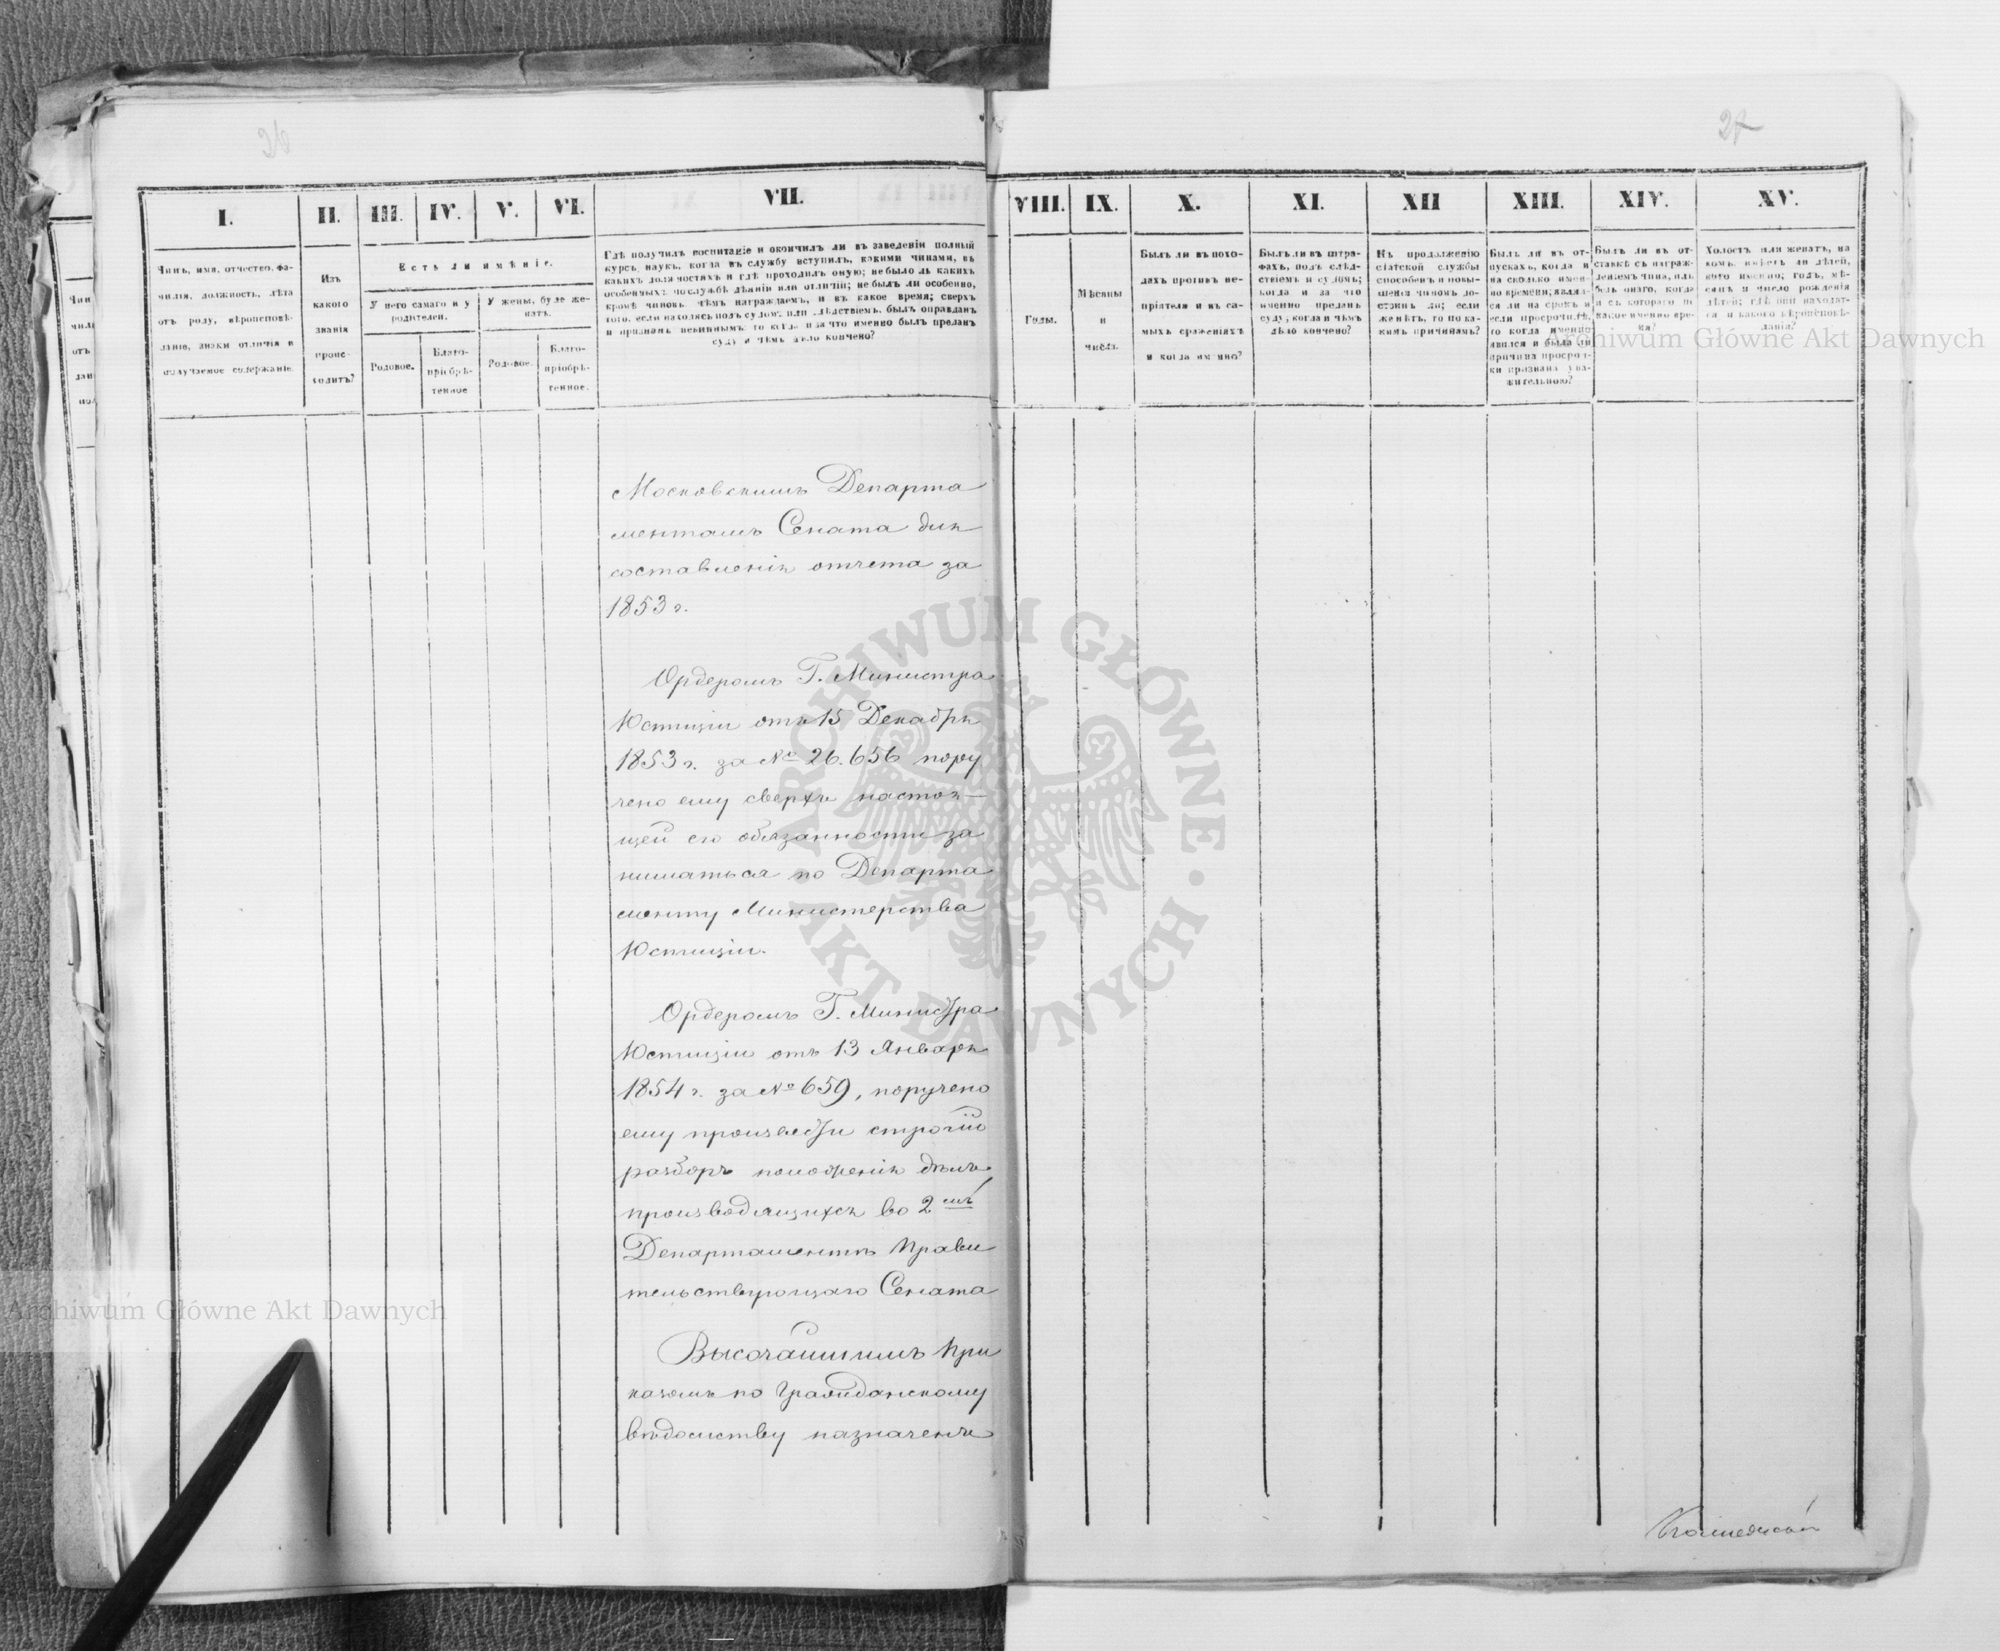 26
27
I.
II.
III.
IV.
V.
VI.
VII.
VIII.
IX.
X.
XI.
XII
XIII.
XIV.
XV.
Чинъ, имя, отчество, фа-
милія, должность, лѣта
отъ роду, вѣроисповѣ-
даніе, знаки отличія и
получаемое содержаніе.
Изъ
какого
званія
проис-
ходитъ?
Есть ли имѣніе.
У него самаго и у
родителей.
У жены, буде же-
натъ.
Родовое.
Благо-
пріобрѣ-
тенное
Родовое.
Благо-
пріобрѣ-
тенное.
Гдѣ получилъ воспитаніе и окончилъ ли въ заведеніи полный
курсъ наукъ, когда въ службу вступилъ, какими чинами, въ
какихъ должностяхъ и гдѣ проходилъ оную; не было ль какихъ
особенныхъ по службѣ дѣяній или отличій; не былъ ли особенно,
кромѣ чиновъ чѣмъ награждаемъ, и въ какое время; сверхъ
того, если находясь подъ судомъ или слѣдствіемъ, былъ оправданъ
и признанъ невиннымъ, то когда и за что именно былъ преданъ
суду и чѣмъ дѣло кончено?
Годы.
Мѣсяцы
и
числа.
Былъ ли въ похо-
дахъ противъ не-
пріятеля и въ са-
мыхъ сраженіяхъ
и когда именно?
Былъ ли въ штра-
фахъ, подъ слѣд-
ствіемъ и судомъ;
когда и за что
именно преданъ
суду; когда и чѣмъ
дѣло кончено?
Къ продолженію
статской службы
способенъ и повы-
шенія чиномъ до-
стоинъ ли; если
же нѣтъ, то по ка-
кимъ причинамъ?
Былъ ли въ от-
пускахъ, когда и
на сколько имен-
но времени; явил-
ся ли на срокъ и
если просрочилъ,
то когда именно
явился и была ли
причина просроч-
ки признана ува-
жительною?
Былъ ли въ от-
ставкѣ съ награж-
деніемъ чина, или
безъ онаго, когда
и съ котораго по
какое именно вре-
мя?
Холостъ или женатъ, на
комъ, имѣетъ ли дѣтей,
кого именно; годъ, мѣ-
сяцъ и число рожденія
дѣтей; гдѣ они находят-
ся и какого вѣроисповѣ-
данія?
Московскимъ Департа
ментамъ Сената для
составленія отчета за
1853 г.
Ордеромъ Г. Министра
Юстиціи отъ 15 Декабря
1853 г. за № 26.656 пору
чено ему сверхъ настоя-
щей его обязанности за
ниматься по Департа
менту Министерства
Юстиціи.
Ордеромъ Г. Министра
Юстиціи отъ 13 Января
1854 г. за № 659, поручено
ему произвести строгій
разборъ положенія дѣлъ
производящихся во 2мъ
Департаментѣ Прави
тельствующаго Сената
Высочайшимъ При
казомъ по Гражданскому
вѣдомству назначенъ
Archiwum Główne Akt Dawnych
Archiwum Główne Akt Dawnych
ARCHIWUM GŁÓWNE · AKT DAWNYCH ·